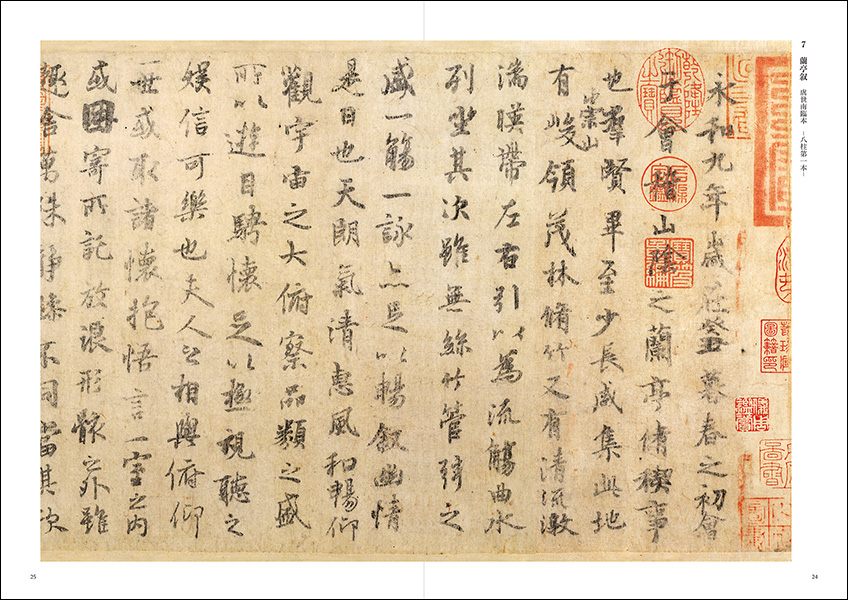 7 蘭亭叙 虞世南臨本 ―八柱第一本―
永和九年歲在癸丑暮春之初會
于會稽山陰之蘭亭脩禊事
也羣賢畢至少長咸集此地
有崇山峻領茂林脩竹又有清流激
湍暎帶左右引以為流觴曲水
列坐其次雖無絲竹管弦之
盛一觴一詠亦足以暢敘幽情
是日也天朗氣清惠風和暢仰
觀宇宙之大俯察品類之盛
所以遊目騁懷足以極視聽之
娛信可樂也夫人之相與俯仰
一世或取諸懷抱悟言一室之內
或因寄所託放浪形骸之外雖
趣舍萬殊靜躁不同當其欣
24
25